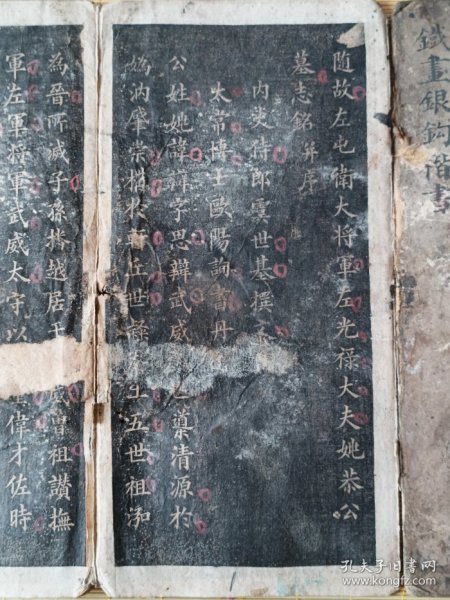 鐵畫銀鈎 楷書
随故左屯衛大将軍左光禄大夫姚恭公
墓志銘并序
内史侍郎虞世基撰
太常博士歐陽詢書丹
公姓姚諱辯字思辯武威人導清源於
媯汭肇崇構於商丘世禄五世祖泓
為晉所滅子孫播越居于曾祖讃撫
軍左軍将軍武威太守以偉才佐時
孔夫子旧书网
www.kongfz.com